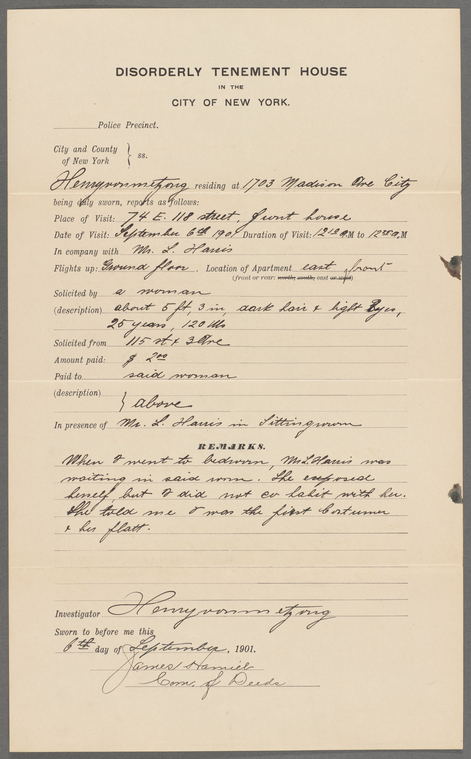 DISORDERLY TENEMENT HOUSE
IN THE
CITY OF NEW YORK.
Police Precinct.
City and County
of New York } ss.
Henry von metzong residing at 1703 Madison Ave City
being duly sworn, reports as follows:
Place of Visit: 74 E. 118 street, front house
Date of Visit: September 6th 1901 Duration of Visit: M to M
In company with Mr. L. Harris
Flights up: Ground floor. Location of Apartment east front
(front or rear: north, south, east or west)
Solicited by a woman
(description) about 5 ft, 3 in, dark hair & light Eyes,
25 years, 120 lbs
Solicited from 115 st & 3 Ave
Amount paid: $ 2.00
Paid to said woman
(description)
} above
In presence of Mr. L. Harris in Sittingroom
REMARKS.
When I went to bedroom, Mr L. Harris was
waiting in said room. She exposed
herself, but I did not co habit with her.
She told me I was the first Costumer
& his flatt.
Investigator Henry von metzong
Sworn to before me this
6th day of September, 1901.
James
Com. of Deeds